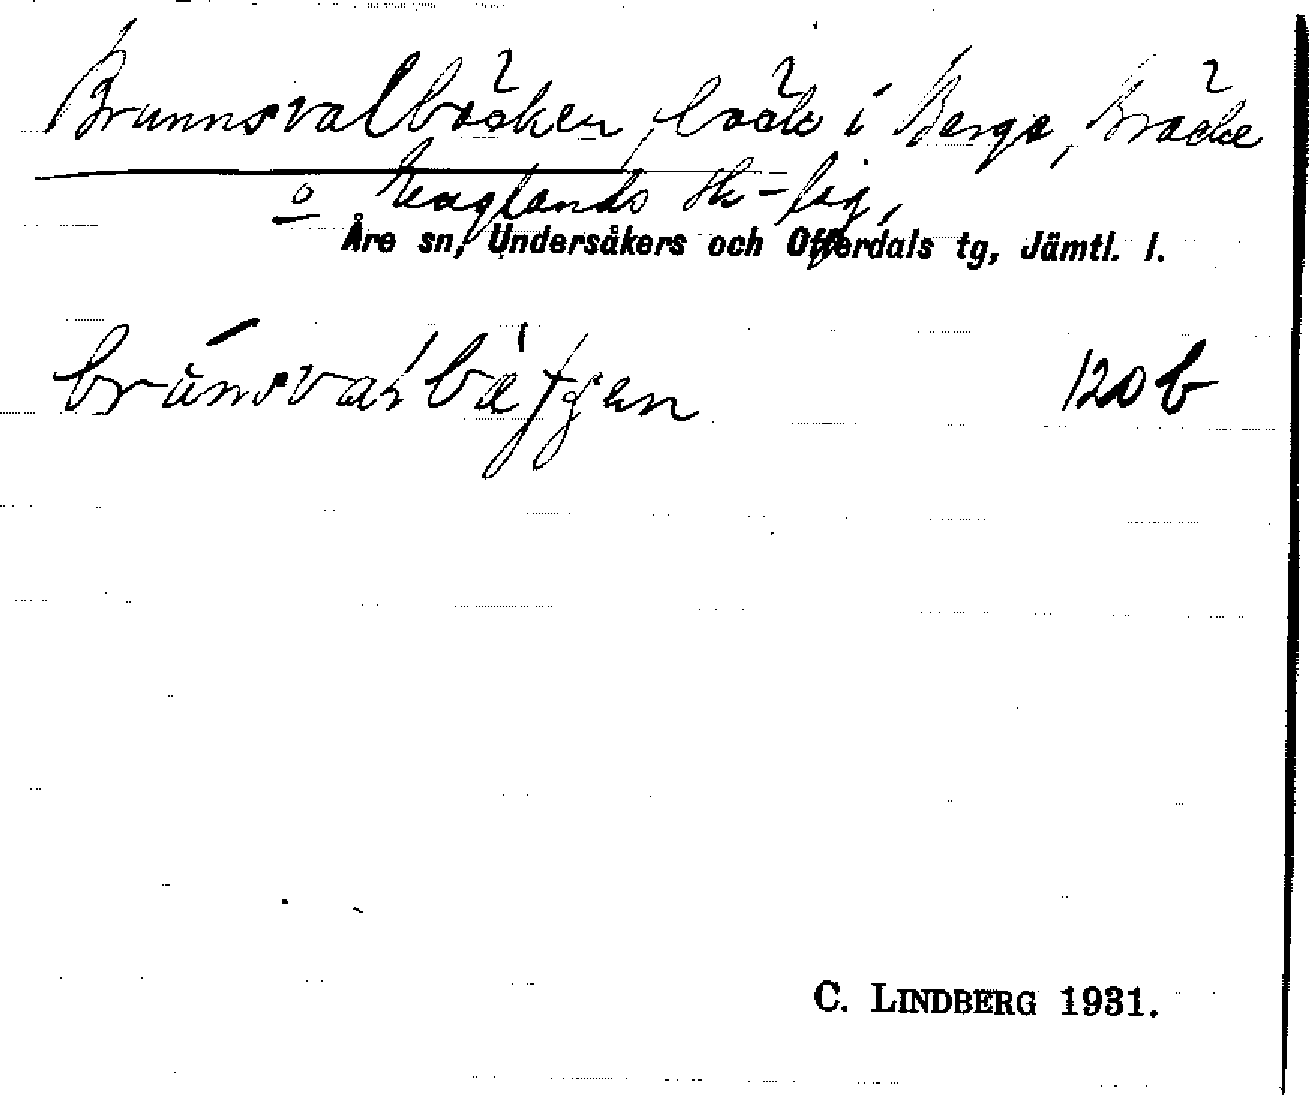 Brunnsvalbäcken, bäck i Berge, Bräcke
o Englands sk-lag,
Åre sn, Undersåkers och Offerdals tg, Jämtl. l.
120 b
C. LINDBERG 1931.